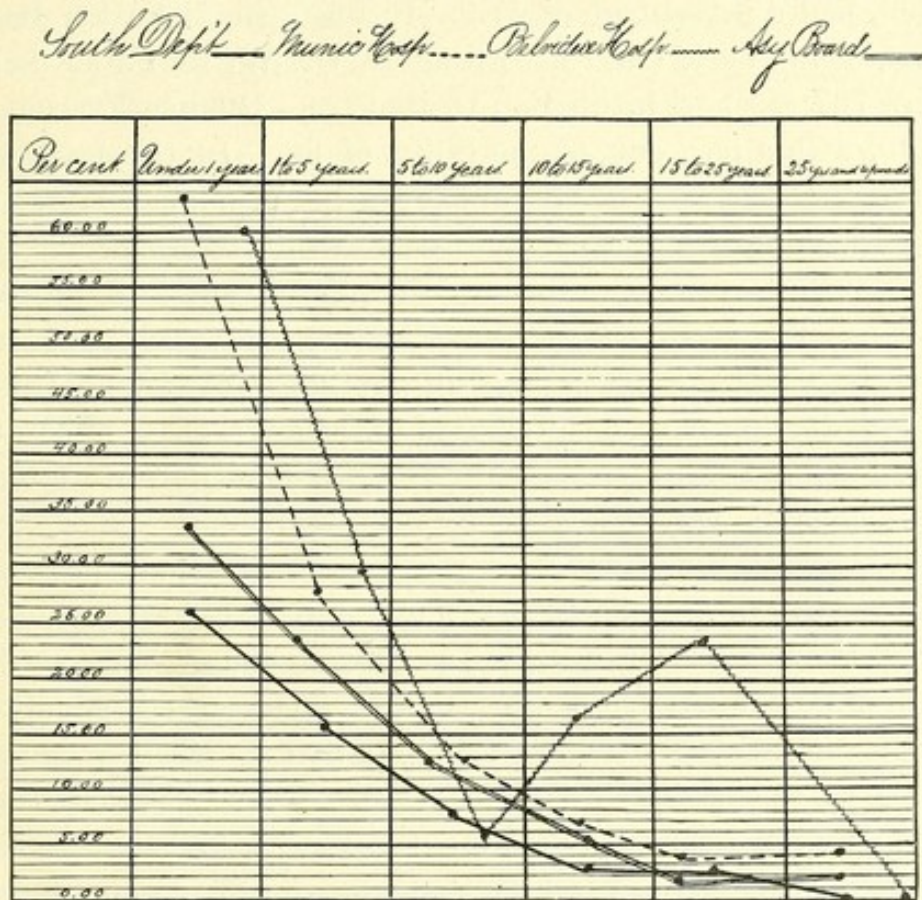 South Dep't Munic Hosp. Belvidere Hosp. Asy Board
Per cent. Under 1 year 1 to 5 years. 5 to 10 years. 10 to 15 years. 15 to 25 years 25 yrs and upwards
60.00
55.00
50.00
45.00
40.00
35.00
30.00
25.00
20.00
15.00
10.00
5.00
0.00